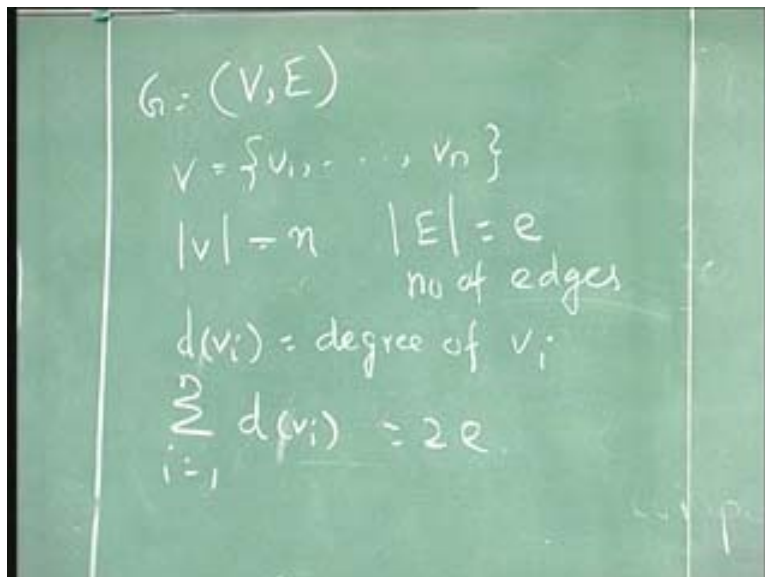 G = (V, E)
V = {v₁, . . . , vₙ}
|V| = n |E| = e
no of edges
d(vᵢ) = degree of vᵢ
n
∑ d(vᵢ) = 2e
i=1